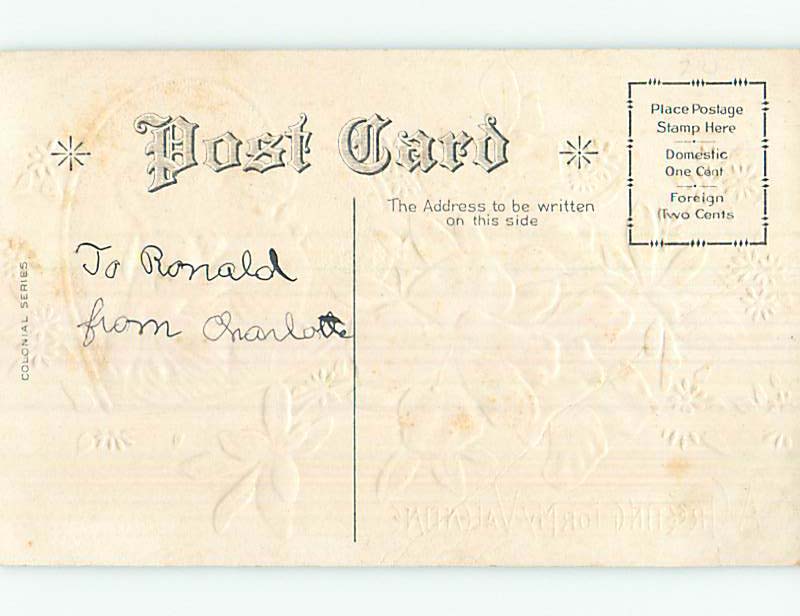 Post Card
Place Postage
Stamp Here
Domestic
One Cent
Foreign
Two Cents
The Address to be written
on this side
To Ronald
from Charlotte
COLONIAL SERIES